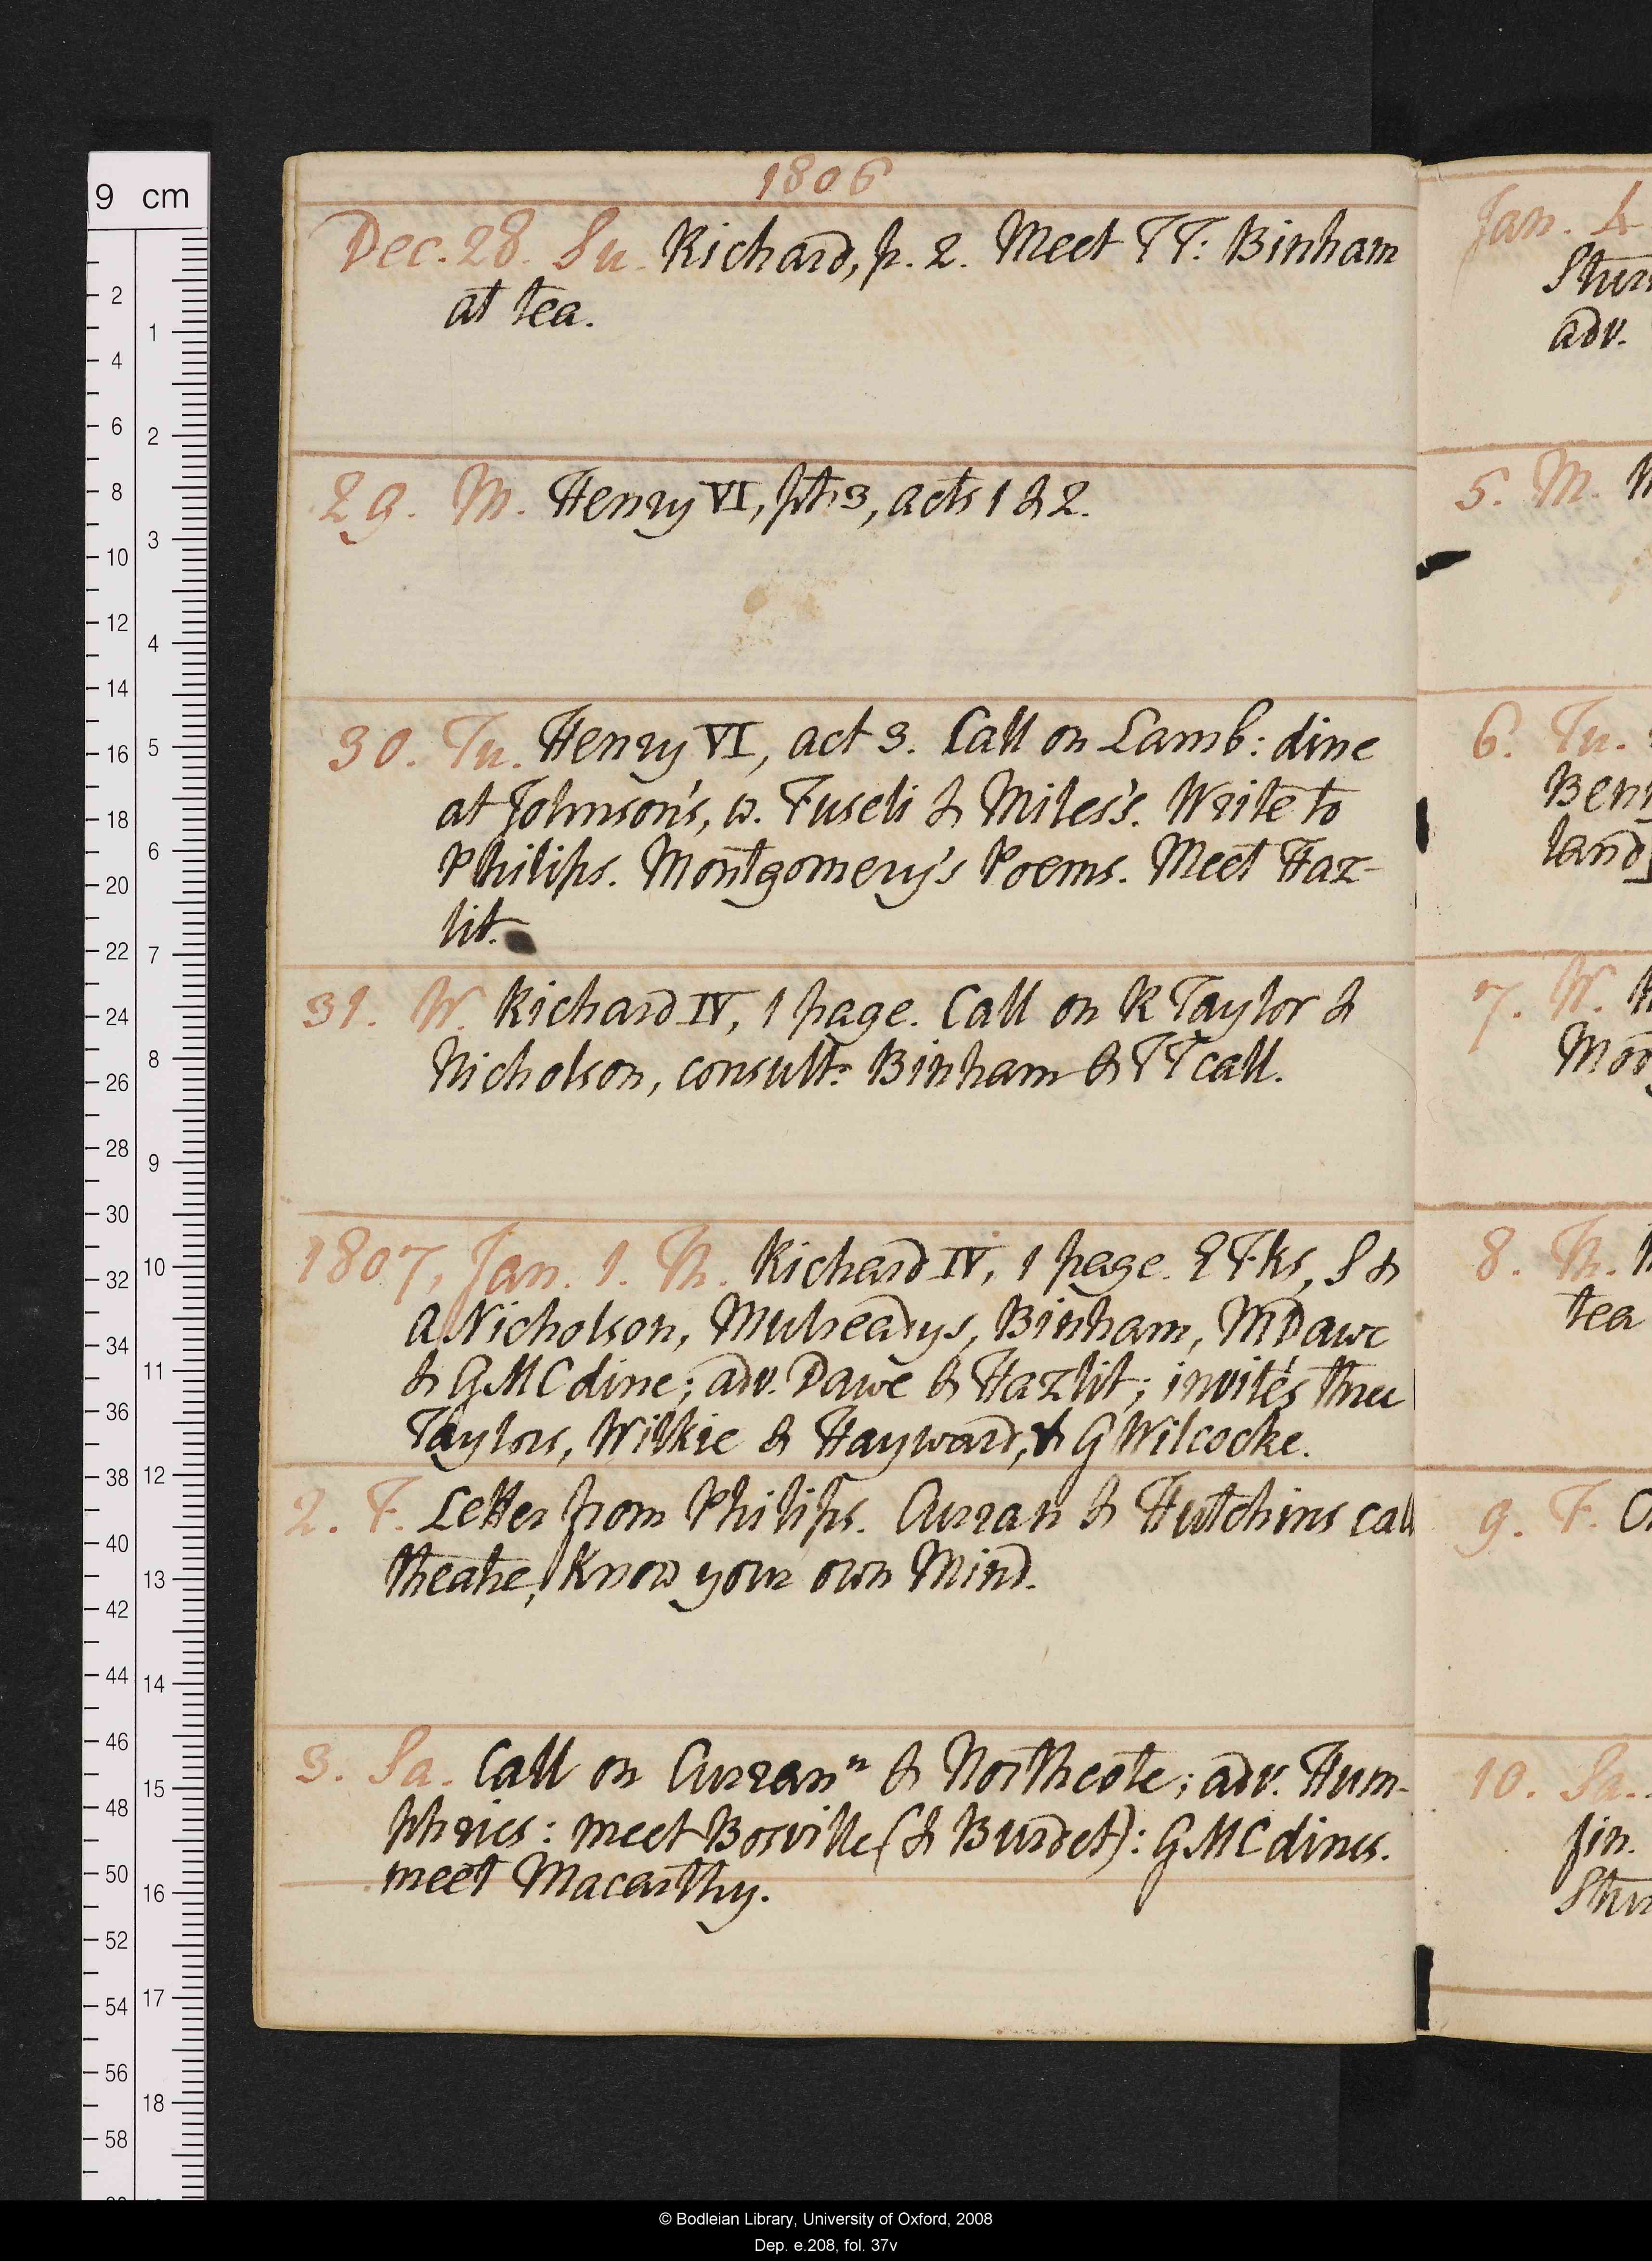 1806
Dec. 28. Su. Richard, p. 2. Meet TT: Binham
at tea.
29. M. Henry VI, pt. 3, acts 1 & 2.
30. Tu. Henry VI, act 3. Call on Lamb: dine
at Johnson's, w. Fuseli & Miles's. Write to
Philips. Montgomery's Poems. Meet Haz-
lit.
31. W. Richard IV, 1 page. Call on R Taylor &
Nicholson, consultn: Binham & TT call.
1807, Jan. 1. Th. Richard IV, 1 page. 2 Fks, S &
A Nicholson, Mulreadys, Binham, M Dawe
& GMC dine; adv. Dawe & Hazlit; invités three
Taylors, Wilkie & Hayward, & G Wilcocke.
2. F. Letter from Philips. Curran & Hutchins call
theatre, Know your own Mind.
3. Sa. Call on Curran n & Northcote; adv. Hum-
phries: meet Bosville (& Burdet): GMC dines.
meet Macarthy.
Jan. 4
adv.
5. M.
6. Tu.
7. W.
8. Th.
tea
9. F.
10. Sa.
fin.
9 cm
2
4
6
8
10
12
14
16
18
20
22
24
26
28
30
32
34
36
38
40
42
44
46
48
50
52
54
56
58
1
2
3
4
5
6
7
8
9
10
11
12
13
14
15
16
17
18
© Bodleian Library, University of Oxford, 2008
Dep. e.208, fol. 37v